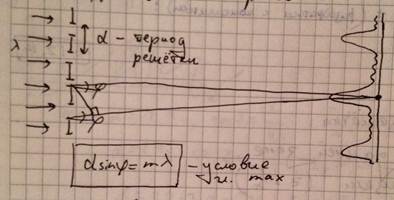 λ
d - период
решётки
φ
φ
d sinφ = mλ - условие
и. max